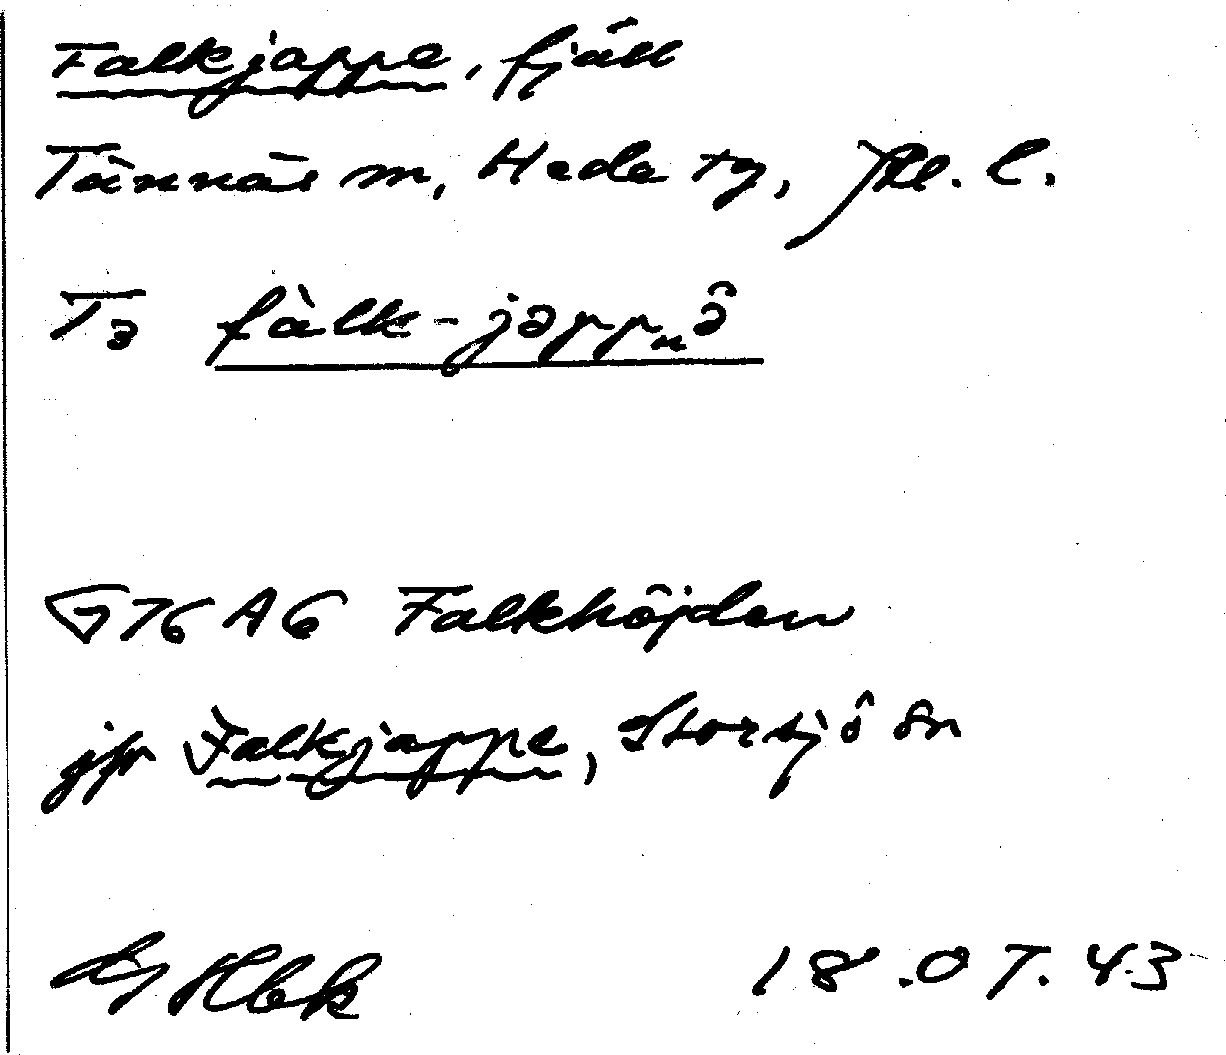 Falkjappe, fjäll
Tännäs sn, Hede tg, Jtl. l.
T3 fàlk-jəppₙə̂
G 76 A6 Falkhöjden
jfr Falkjappe, Storsjö sn
18.07.43